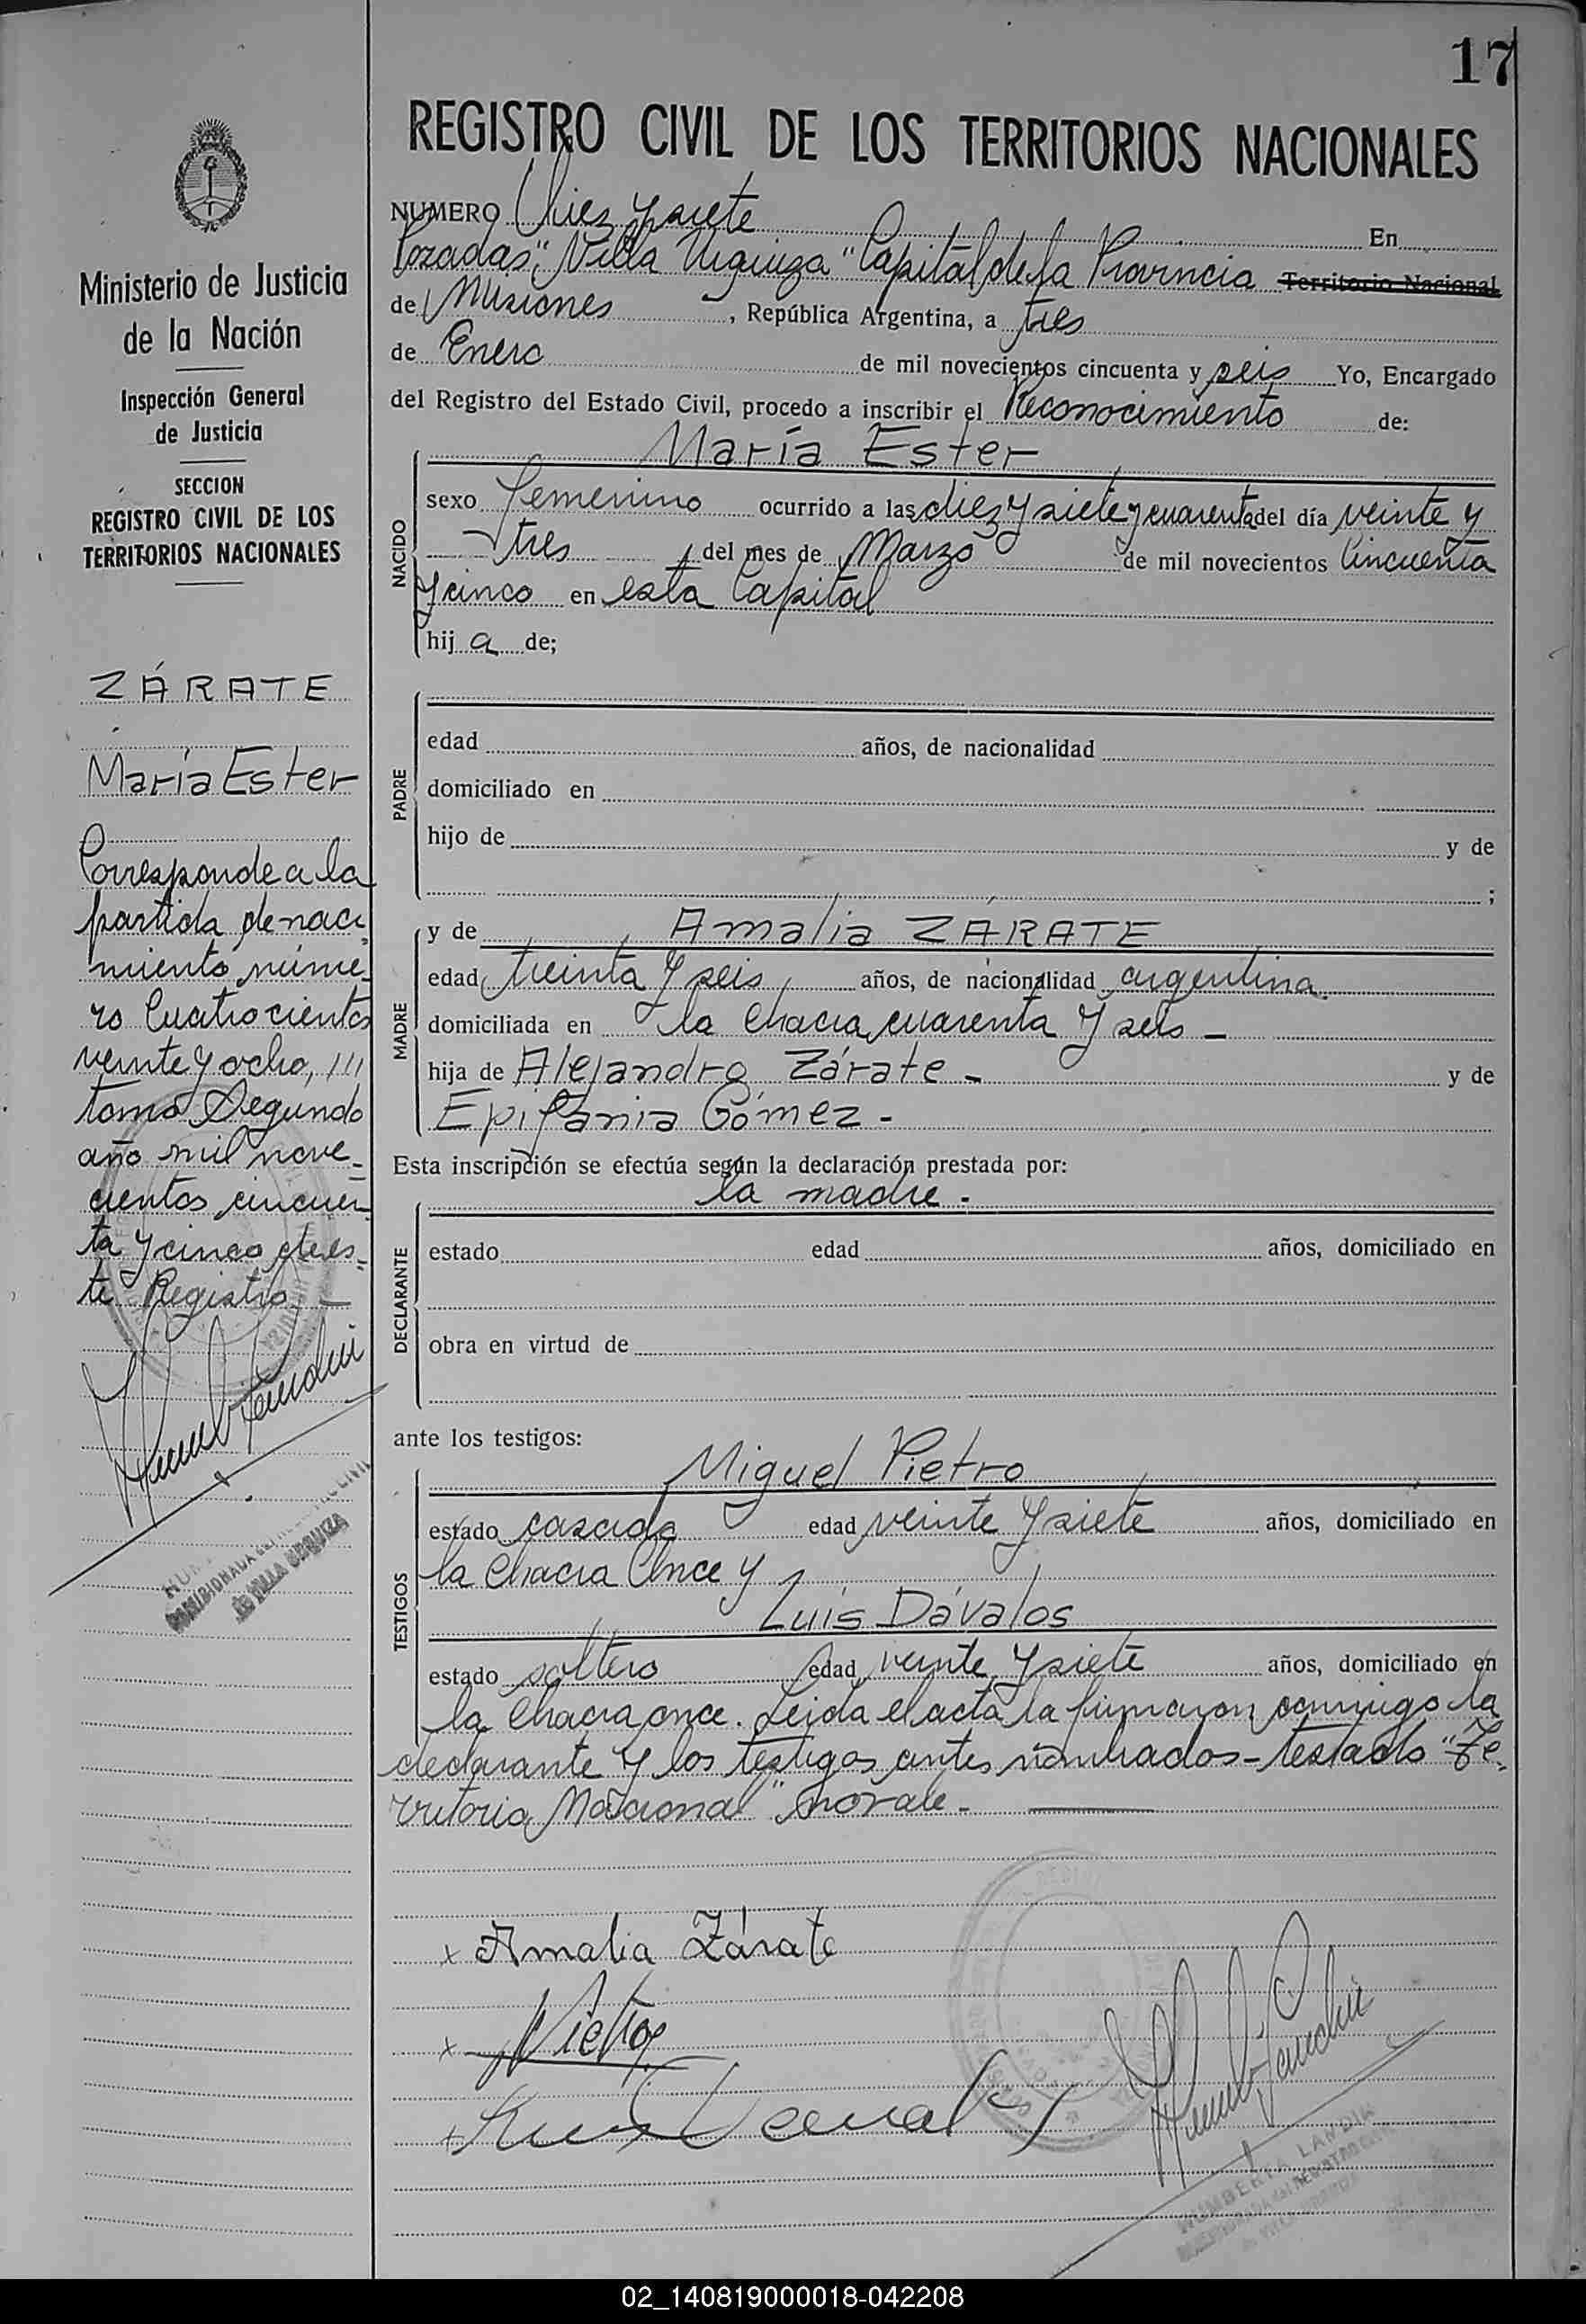 17
REGISTRO CIVIL DE LOS TERRITORIOS NACIONALES
Ministerio de Justicia
de la Nación
Inspección General
de Justicia
SECCION
REGISTRO CIVIL DE LOS
TERRITORIOS NACIONALES
ZÁRATE
María Ester
Corresponde a la
partida de naci
miento núme
ro Cuatrocientos
veinte y ocho,
tomo Segundo
año mil nove
cientos cincuen
ta y cinco de es
te Registro
NUMERO Diez y siete En
Pozadas "Villa Urquiza" Capital de la Provincia Territorio Nacional
de Misiones, República Argentina, a tres
de Enero de mil novecientos cincuenta y seis Yo, Encargado
del Registro del Estado Civil, procedo a inscribir el Reconocimiento de:
NACIDO
María Ester
sexo femenino ocurrido a las diez y siete y cuarenta del día veinte y
tres del mes de Marzo de mil novecientos Cincuenta
y cinco en esta Capital
hij a de;
PADRE
edad años, de nacionalidad
domiciliado en
hijo de y de
;
MADRE
y de Amalia ZÁRATE
edad treinta y seis años, de nacionalidad argentina.
domiciliada en la Chacra cuarenta y seis -
hija de Alejandro Zárate - y de
Epifania Gómez -
Esta inscripción se efectúa según la declaración prestada por:
DECLARANTE
la madre -
estado edad años, domiciliado en
obra en virtud de
ante los testigos:
TESTIGOS
Miguel Pietro
estado casado edad veinte y siete años, domiciliado en
la Chacra Once y
Luis Dávalos
estado soltero edad veinte y siete años, domiciliado en
la Chacra once. Leida el acta la firmaron conmigo la
declarante y los testigos antes nombrados - testado "Te
rritorio Nacional" no vale -
x Amalia Zárate
x Pietro
HUMBERTA LANDIN
02_140819000018-042208